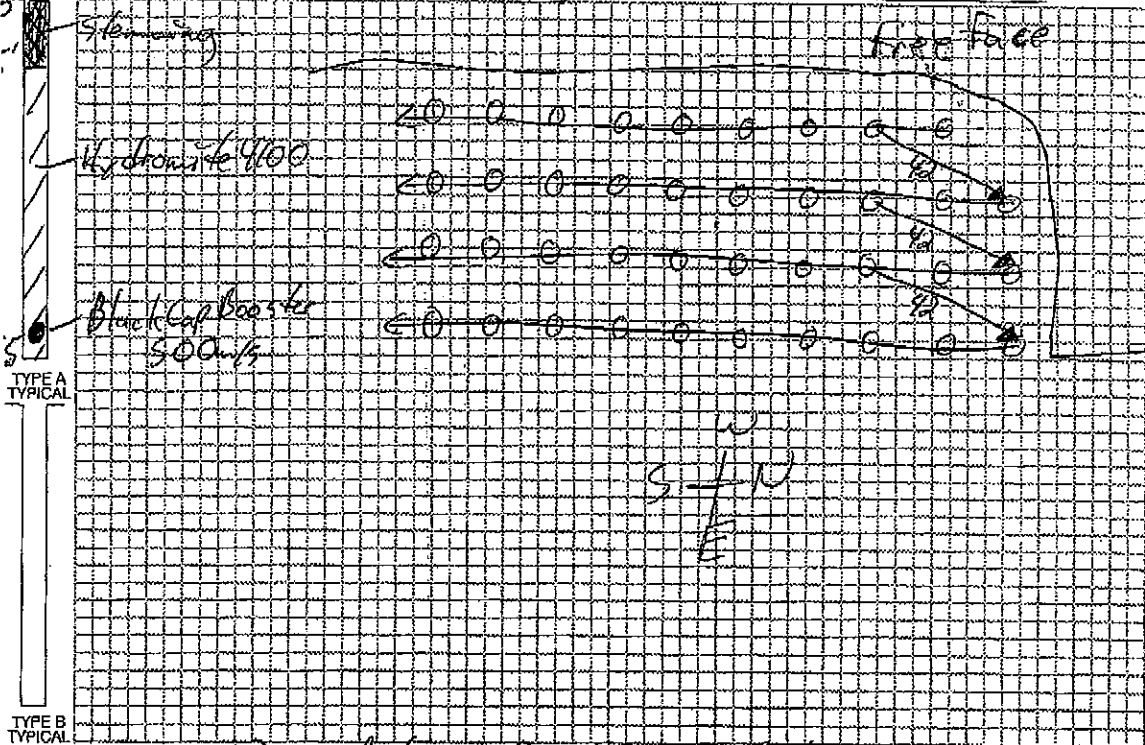 Stemming
Free Face
Hydromite 4100
42
42
42
Black Cap Booster
500m/s
TYPE A
TYPICAL
W
S N
E
TYPE B
TYPICAL